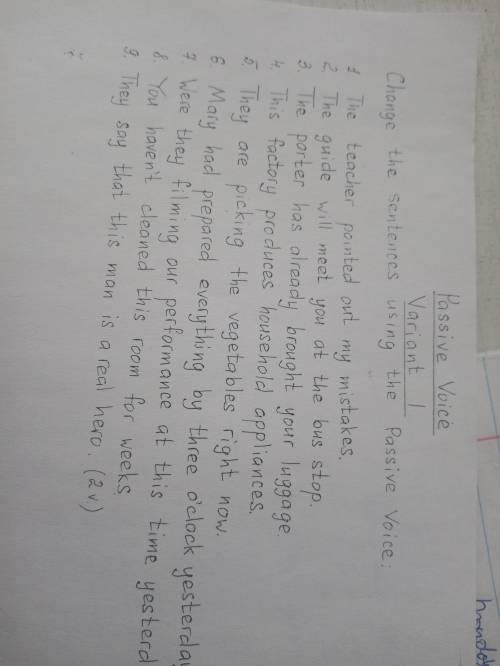 Passive Voice
Variant 1
Change the sentences using the Passive Voice:
1 The teacher pointed out my mistakes.
2 The guide will meet you at the bus stop.
3. The porter has already brought your luggage.
4. This factory produces household appliances.
5. They are picking the vegetables right now.
6. Mary had prepared everything by three o'clock yesterday
7. Were they filming our performance at this time yesterd
8. You haven't cleaned this room for weeks
9. They say that this man is a real hero. (2v)